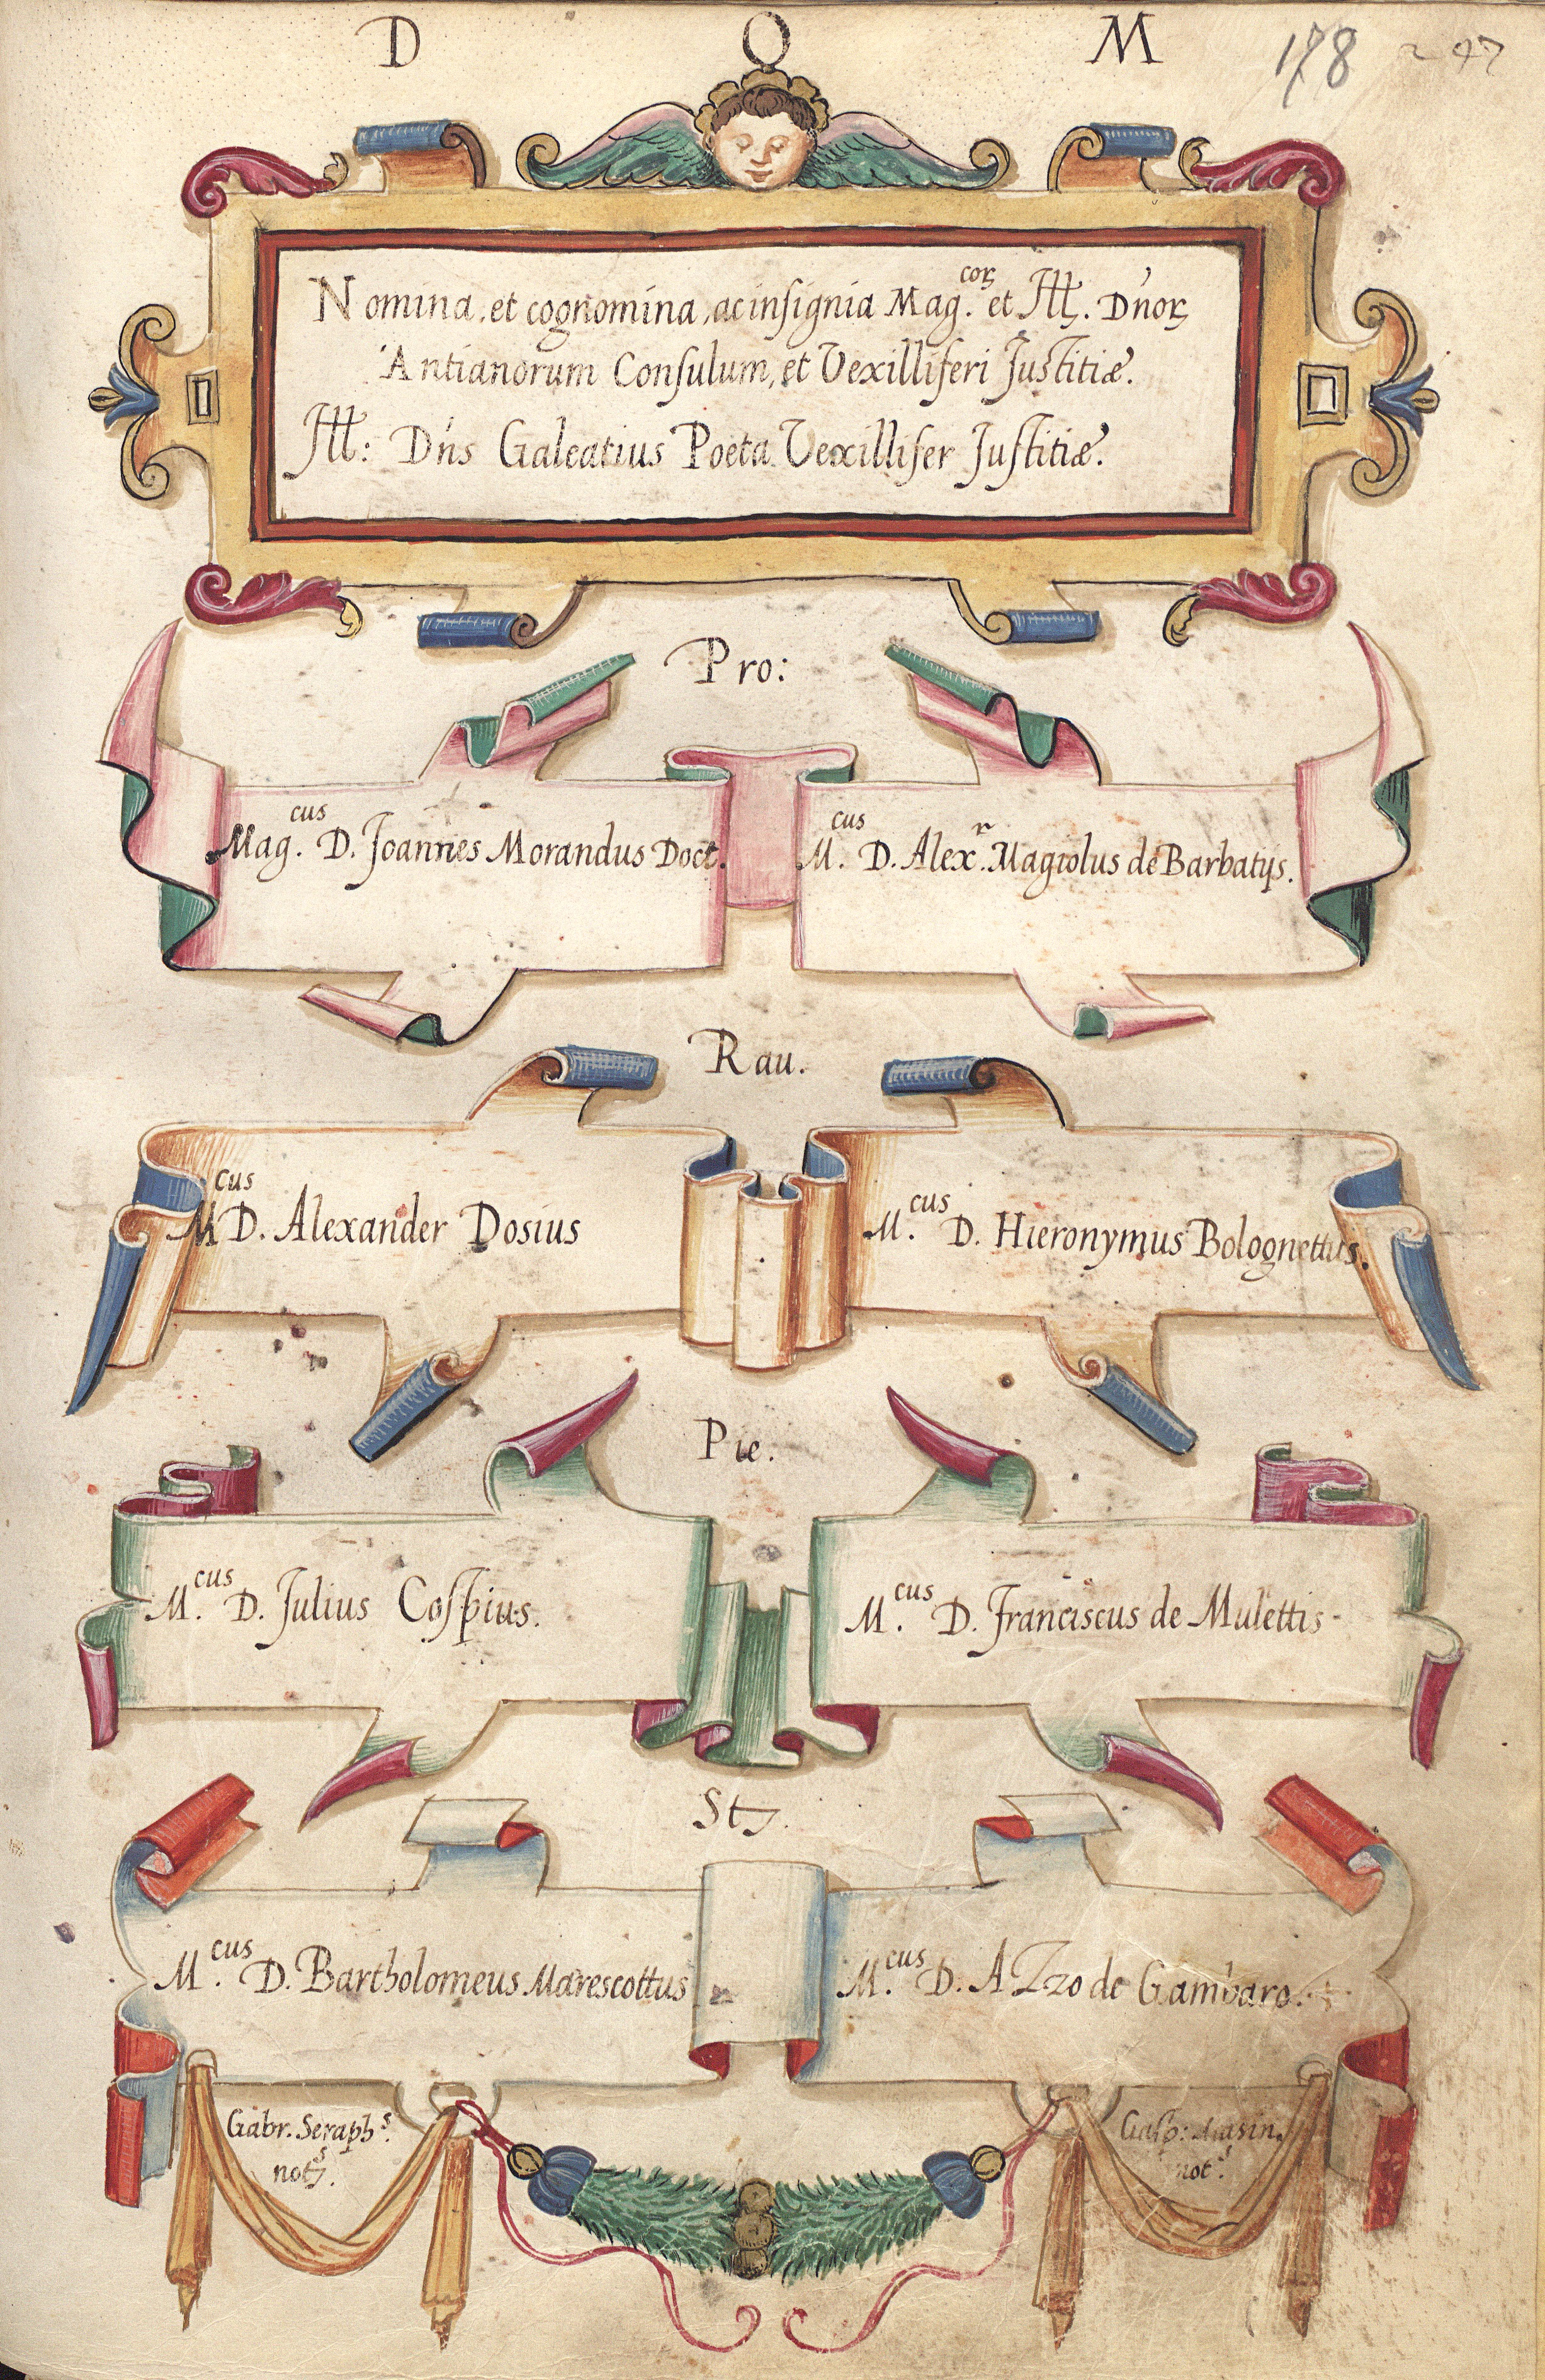 D O M
178 247
Nomina, et cognomina, ac insignia Mag.cor et Ill. Dnor
Antianorum Consulum, et Vexilliferi Justitiæ.
Ill: Dns Galeatius Poeta Vexillifer Justitiæ.
Pro:
Mag.cus D. Joannes Morandus Doct.
M.cus D. Alex.r Magiolus de Barbatijs.
Rau.
Mcus D. Alexander Dosius
M.cus D. Hieronymus Bolognettus.
Pie.
M.cus D. Julius Cospius.
M.cus D. Franciscus de Mulettis
St
M.cus D. Bartholomeus Marescottus
M.cus D. AZzo de Gambaro.
Gabr. Seraph.s
nots.
Gasp: Masin.
not.s